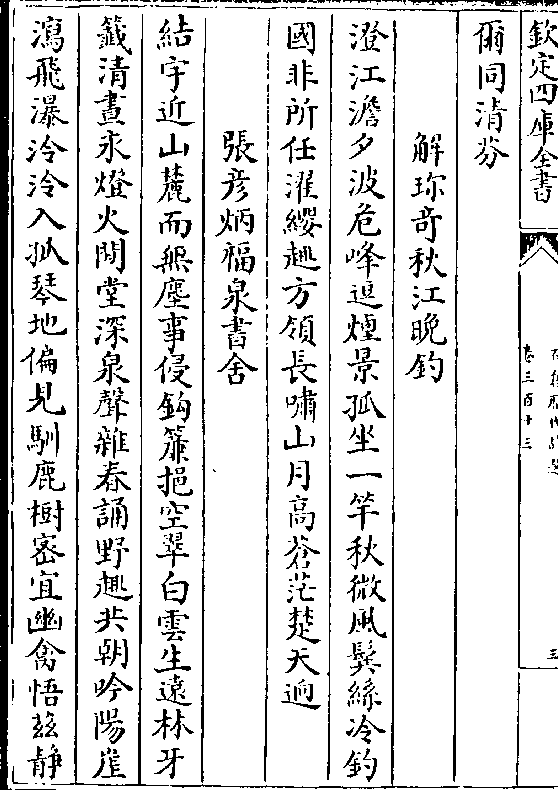 欽定四庫全書
卷三百十三
三
爾同清芬
解珎竒秋江晚釣
澄江澹夕波危峰逗煙景孤坐一竿秋微風鬂絲冷釣
國非所任濯纓趣方領長嘯山月高蒼茫楚天逈
張彥炳福泉書舍
結宇近山麓而無塵事侵鈎簾挹空翠白雲生遠林牙
籤清晝永燈火閒堂深泉聲雜春誦野趣共朝吟陽崖
瀉飛瀑泠泠入孤琴地偏見馴鹿樹宻宜幽禽悟兹静